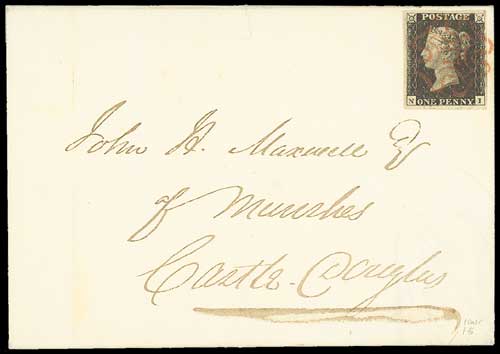 POSTAGE
N ONE PENNY I
John H. Maxwell Esq
of Munches
Castle-Douglas